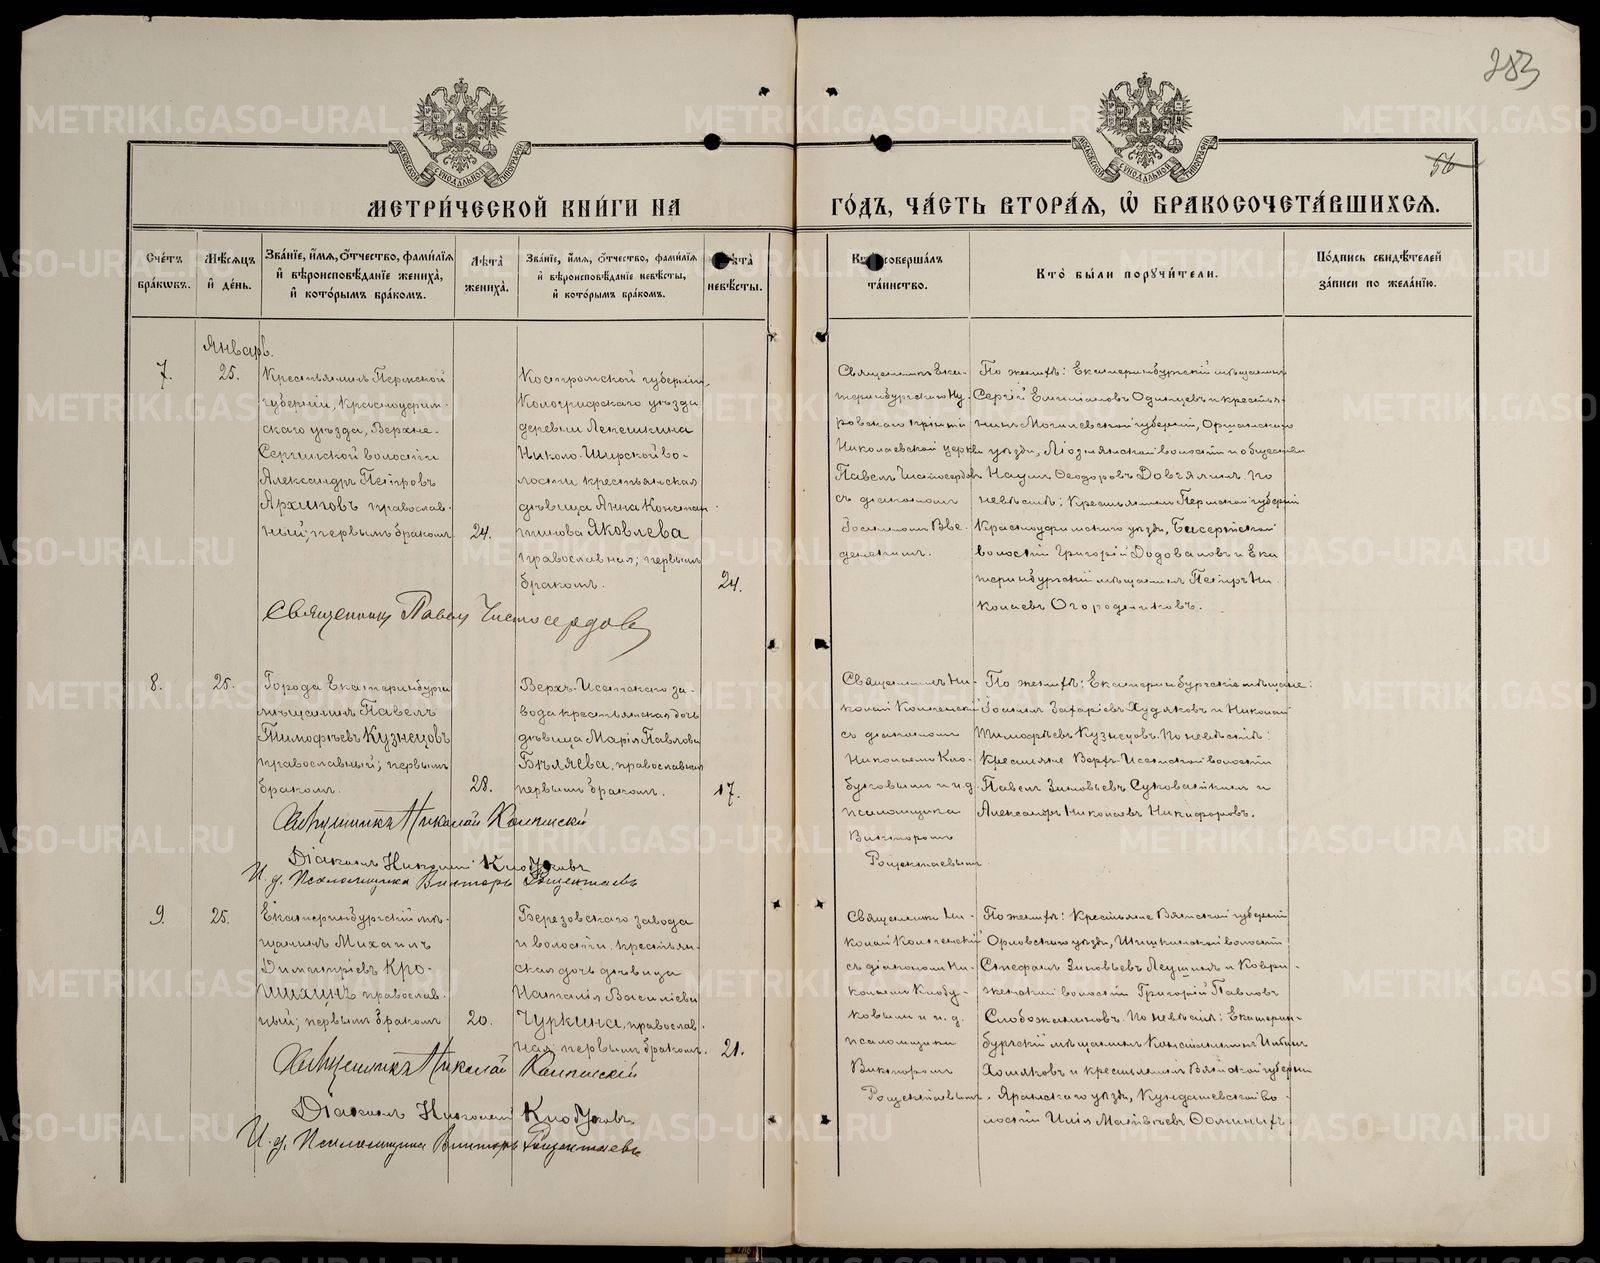 283
56
МЕТРИ́ЧЕСКОЙ КНИ́ГИ НА
ГО́ДЪ, ЧА́СТЬ ВТОРА́Я, Ѽ БРАКОСОЧЕТА́ВШИХСЯ.
Сче́тъ бра́кѡвъ.
Мѣ́сяцъ и҆ де́нь.
Зва́нїе, и҆́мя, ѻ҆́тчество, фами́лїя
и҆ вѣроисповѣ́данїе жениха̀,
и҆ кото́рымъ бра́комъ.
Лѣ́та жениха̀.
Зва́нїе, и҆́мя, ѻ҆́тчество, фами́лїя
и҆ вѣроисповѣ́данїе невѣ́сты,
и҆ кото́рымъ бра́комъ.
невѣ́сты.
соверша́лъ
та́инство.
Кто̀ бы́ли порꙋчи́тели.
По́дпись свидѣ́телей
за́писи по жела́нїю.
Январь.
7.
25.
Крестьянинъ Пермской
губерніи, Красноуфим-
скаго уѣзда, Верхне-
Сергинской волости
Александръ Петровъ
Архиповъ православ-
ный; первымъ бракомъ
24.
Костромской губерніи,
Кологривскаго уѣзда
деревни Лепешкина
Николо-Ширской во-
лости крестьянская
дѣвица Анна Констан-
тинова Яковлева
православная; первымъ
бракомъ.
24.
Священникъ Ека-
теринбургской Ну-
ровскаго пріюта
Николаевской церкви
Павелъ Чистосердовъ
съ діакономъ
Іоанномъ Вве-
денскимъ.
По женихѣ: Екатеринбургскій мѣщанинъ
Сергій Емиліановъ Одинцевъ и крестья-
нинъ Могилевской губерніи, Оршанскаго
уѣзда, волости и общества
Наумъ Ѳеодоровъ Довгялинъ. По
невѣстѣ: Крестьянинъ Пермской губерніи
Красноуфимскаго уѣзда, Бисертской
волости Григорій Додоваловъ и Ека-
теринбургскій мѣщанинъ Петръ Ни-
колаевъ Огородниковъ.
Священникъ Павелъ Чистосердовъ
8.
25.
Города Екатеринбурга
мѣщанинъ Павелъ
Тимофѣевъ Кузнецовъ
православный; первымъ
бракомъ.
28.
Верхъ-Исетскаго за-
вода крестьянская дочь
дѣвица Марія Павлова
Бѣляева, православная
первымъ бракомъ.
17.
Священникъ Ни-
колай Копенскій
съ діакономъ
Николаемъ Кло-
буковымъ и и.д.
псаломщика
Викторомъ
Рощектаевымъ.
По женихѣ: Екатеринбургскіе мѣщане:
Іоаннъ Захаріевъ Худяковъ и Николай
Тимофѣевъ Кузнецовъ. По невѣстѣ:
Крестьяне Верхъ-Исетской волости
Павелъ Зиновьевъ Суковаткинъ и
Александръ Николаевъ Никифоровъ.
Священникъ Николай Копенскій
Діаконъ Николай Клобуковъ
И. д. Псаломщика Викторъ Рощектаевъ
9.
25.
Екатеринбургскій мѣ-
щанинъ Михаилъ
Димитріевъ Кро-
шихинъ православ-
ный; первымъ бракомъ
20.
Березовскаго завода
и волости, крестьян-
ская дочь дѣвица
Наталія Василіева
Чуркина, православ-
ная; первымъ бракомъ.
21.
Священникъ Ни-
колай Копенскій
съ діакономъ Ни-
колаемъ Клобу-
ковымъ и и. д.
псаломщика
Викторомъ
Рощектаевымъ.
По женихѣ: Крестьяне Вятской губерніи
Орловскаго уѣзда, Шишкинской волости
Стефанъ Зиновьевъ Леушинъ и Коври-
жской волости Григорій Павловъ
Слобожаниновъ. По невѣстѣ: Екатерин-
бургскій мѣщанинъ Константинъ
Хомяковъ и крестьянинъ Вятской губерніи
Яранскаго уѣзда, Кундашевской во-
лости Илія Матвѣевъ Ѳоминыхъ
Священникъ Николай Копенскій
Діаконъ Николай Клобуковъ
И. д. Псаломщика Викторъ Рощектаевъ